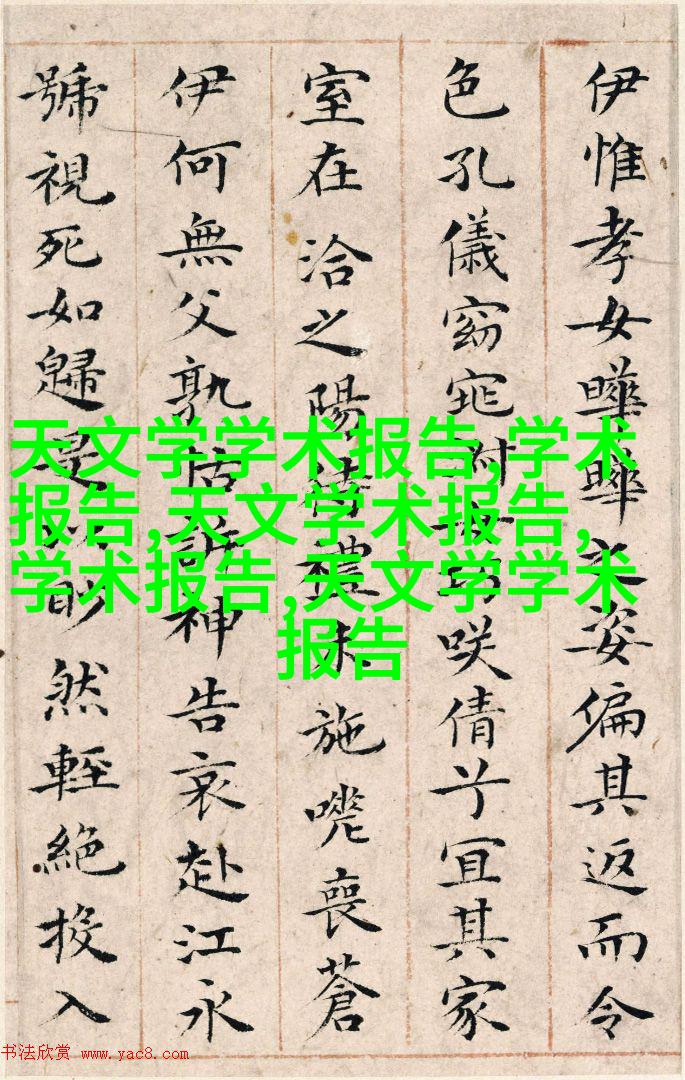 伊惟孝女曄曄之姿偏其返而令
色孔儀窈窕巧咲倩兮宜其家
室在洽之陽待禮未施嗟喪蒼
伊何無父孰怙訴神告哀赴江永
號視死如歸是以眇然輕絕投入
天文学学术报告,学术
报告,天文学术报告,
学术报告,天文学学术
报告
书法欣赏 www.yac8.com